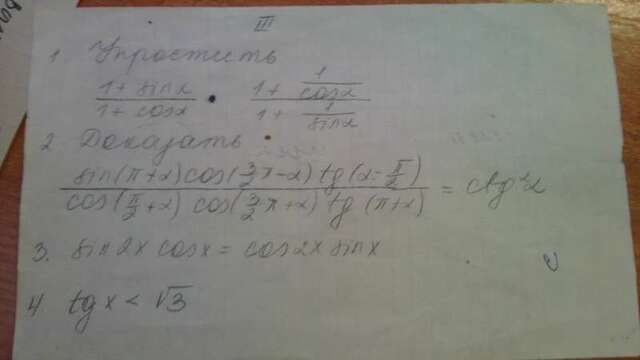 III
1. Упростить
(1 + sin α)/(1 + cos α) • (1 + 1/cos α)/(1 + 1/sin α)
2 Доказать
(sin(π+α) cos(3/2 π-α) tg(α-π/2))/(cos(π/2+α) cos(3/2 π+α) tg(π+α)) = ctg²α
3. sin 2x cos x = cos 2x sin x
4 tg x < √3